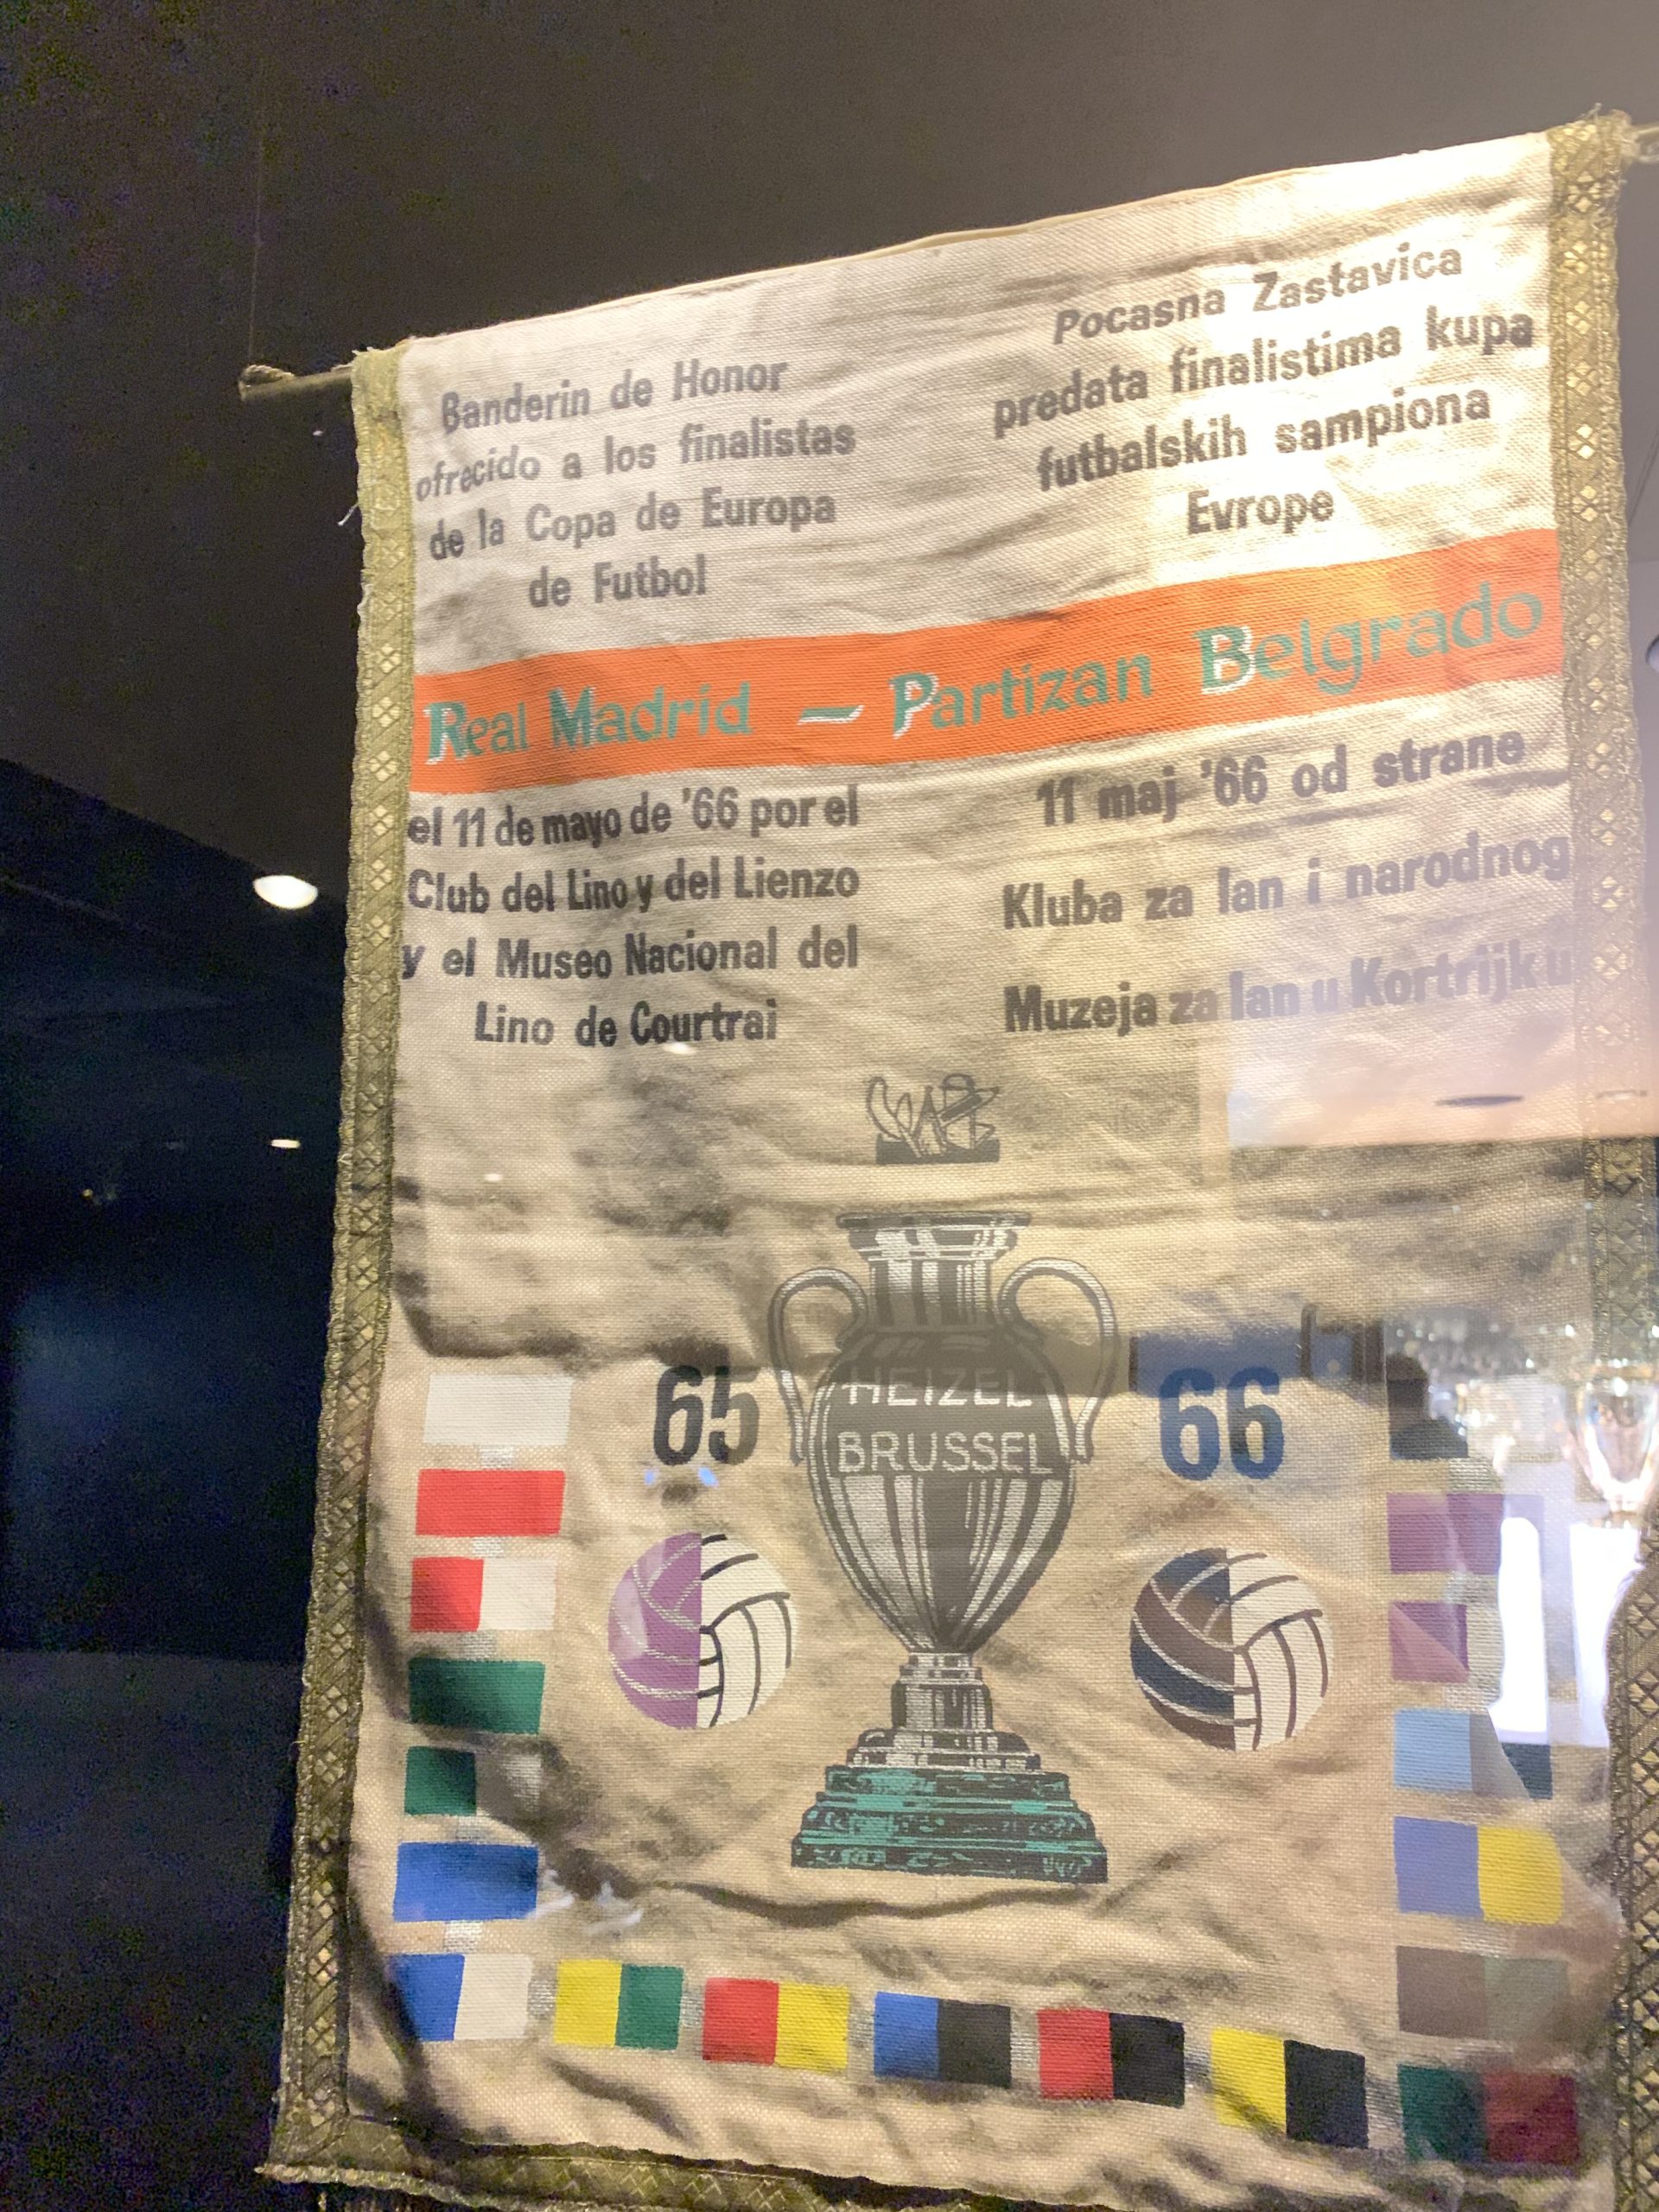 Banderin de Honor
ofrecido a los finalistas
de la Copa de Europa
de Futbol
Pocasna Zastavica
predata finalistima kupa
futbalskih sampiona
Evrope
Real Madrid — Partizan Belgrado
el 11 de mayo de '66 por el
Club del Lino y del Lienzo
y el Museo Nacional del
Lino de Courtrai
11 maj '66 od strane
Kluba za lan i narodnog
Muzeja za lan u Kortrijku
65
HEIZEL
BRUSSEL
66